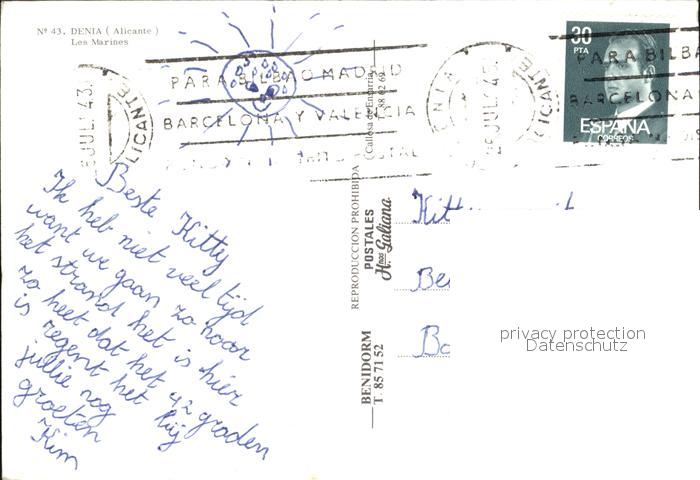 Nº 43. DENIA ( Alicante )
Les Marines
PARA BILBAO MADRID
BARCELONA Y VALENCIA
JUL 43.
ALICANTE
DENIA
JUL 43.
ALICANTE
PARA BILBA
BARCELONA
30
PTA
ESPAÑA
CORREOS
Beste Kitty
Ik heb niet veel tijd
want we gaan zo naar
het strand het is hier
zo heet dat het 42 graden
is regent het bij
jullie nog
groeten
Kim
REPRODUCCION PROHIBIDA
POSTALES
Hnos. Galiana
BENIDORM
T. 85 71 52
Kit
Be
Bo
privacy protection
Datenschutz